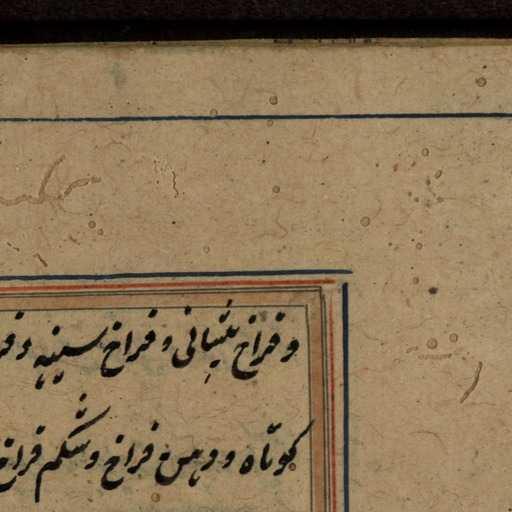 و فراخ پیشانی و فراخ سینه و فر
کوتاه و دهن فراخ و شکم فراخ